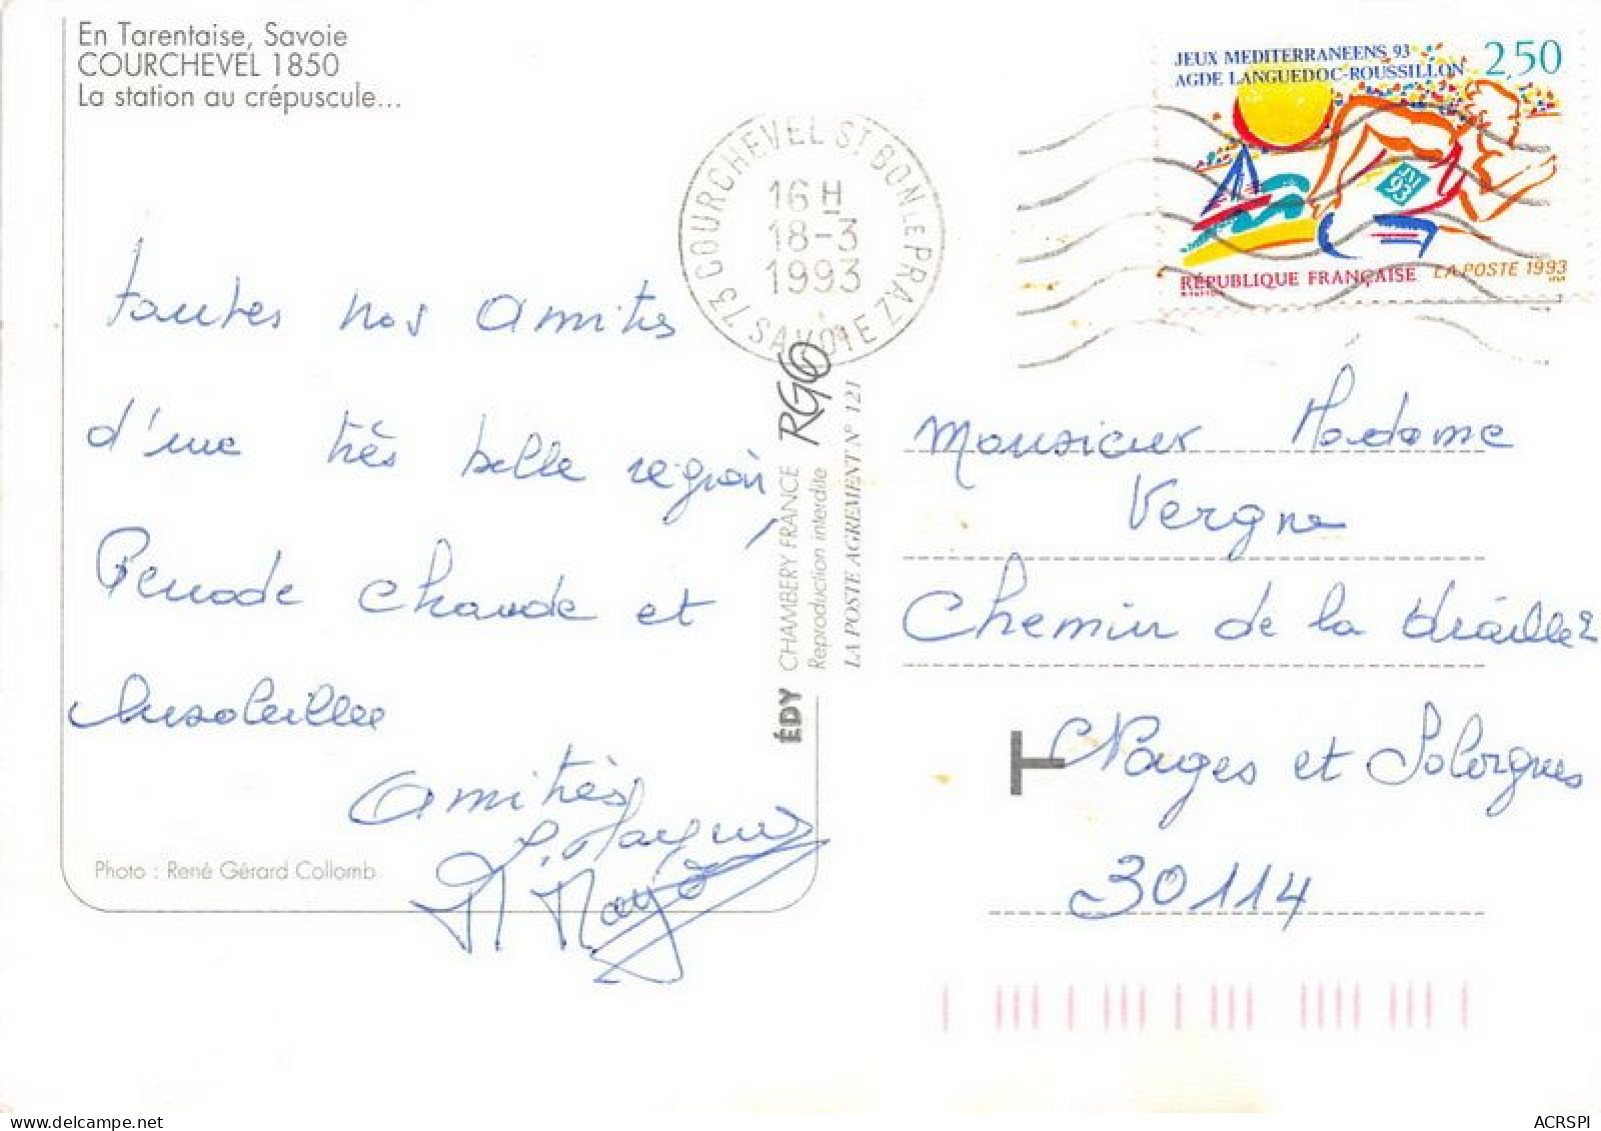 En Tarentaise, Savoie
COURCHEVEL 1850
La station au crépuscule...
toutes nos amitiés
d'une très belle région,
Periode chaude et
ensoleillée
amitiés
Photo : René Gérard Collomb
73 COURCHEVEL ST BON LE PRAZ
SAVOIE
16 H
18-3
1993
ÉDY CHAMBERY FRANCE
Reproduction interdite
LA POSTE AGREMENT N° 121
JEUX MEDITERRANEENS 93
AGDE LANGUEDOC-ROUSSILLON
2,50
93
RÉPUBLIQUE FRANÇAISE LA POSTE 1993
Monsieur Madame
Vergne
Chemin de la
T
Nages et Solorgues
30114
delcampe.net
ACRSPI